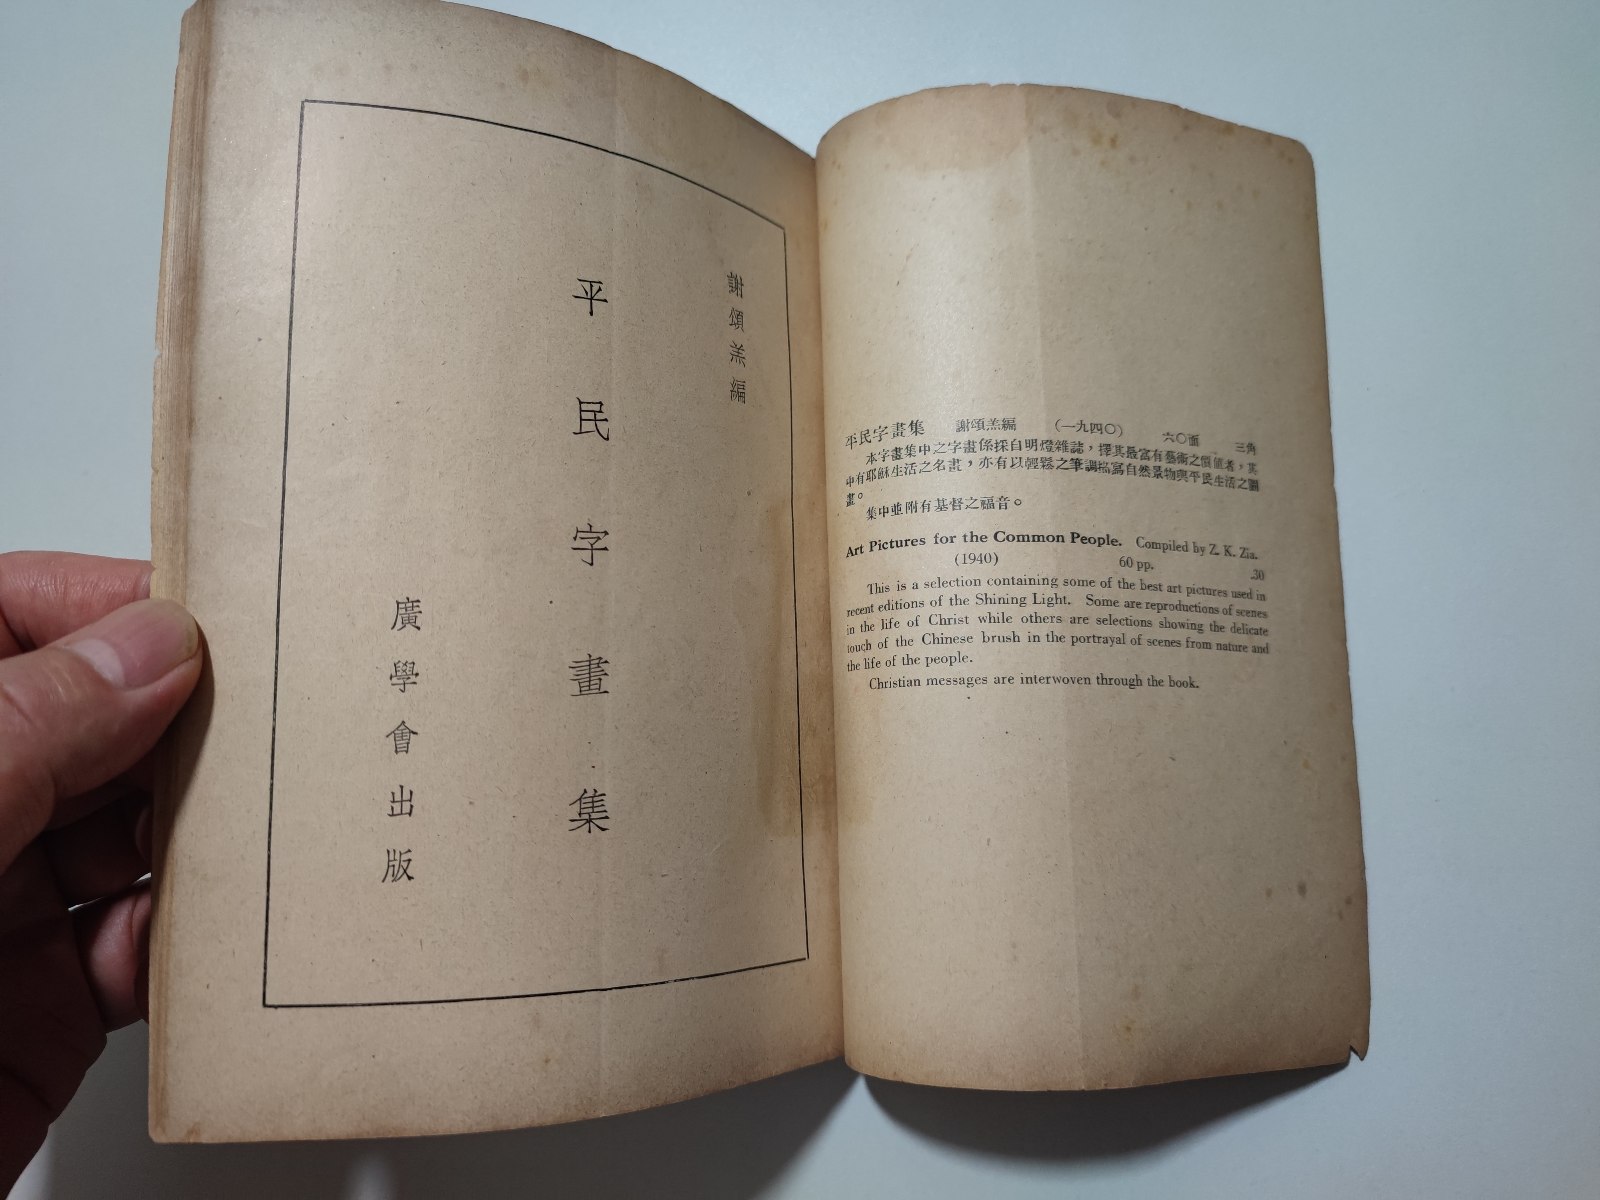 謝頌羔編
平民字畫集
廣學會出版
平民字畫集 謝頌羔編 (一九四〇) 六〇面 三角
本字畫集中之字畫係採自明燈雜誌，擇其最富有藝術之價值者，其
中有耶穌生活之名畫，亦有以輕鬆之筆調描寫自然景物與平民生活之圖
畫。
集中並附有基督之福音。
Art Pictures for the Common People. Compiled by Z. K. Zia.
(1940) 60 pp. .30
This is a selection containing some of the best art pictures used in
recent editions of the Shining Light. Some are reproductions of scenes
in the life of Christ while others are selections showing the delicate
touch of the Chinese brush in the portrayal of scenes from nature and
the life of the people.
Christian messages are interwoven through the book.